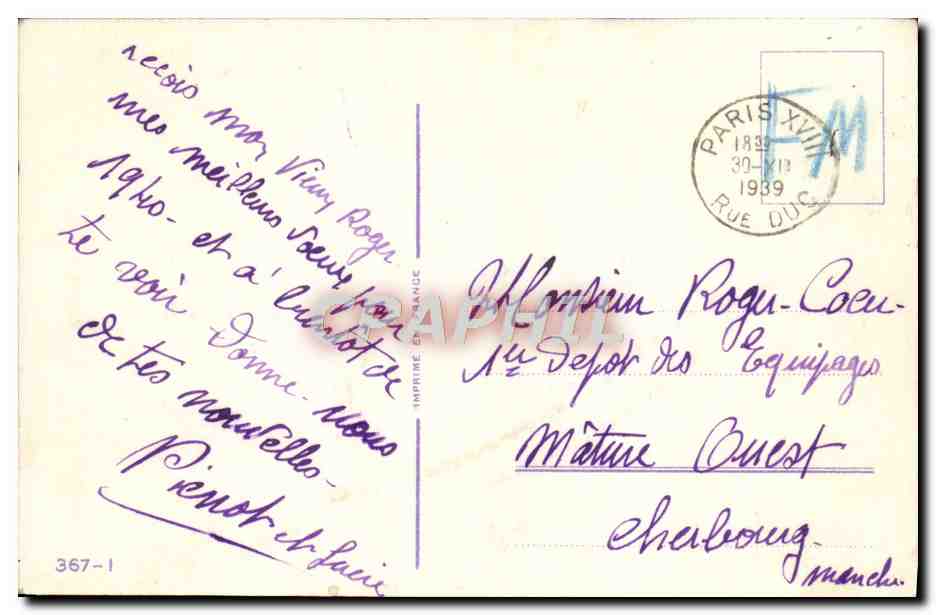 reçois mon vieux Roger
mes meilleurs vœux pour
1940 - et à bientôt de
te voir. Donne-nous
de tes nouvelles -
Pierrot et Lucie
367-1
IMPRIMÉ EN FRANCE
CPAPHIL
FM
PARIS XVIII
18
30-XII
1939
RUE DUC
Monsieur Roger-Coeu-
1er Depot des Equipages
Mâture Ouest
Cherbourg
manche.